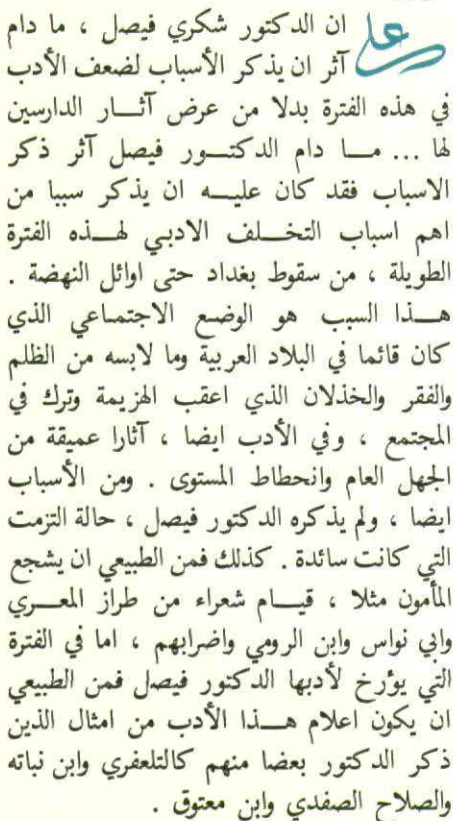 على
ان الدكتور شكري فيصل ، ما دام
آثر ان يذكر الأسباب لضعف الأدب
في هذه الفترة بدلا من عرض آثار الدارسين
لها ... ما دام الدكتور فيصل آثر ذكر
الاسباب فقد كان عليه ان يذكر سببا من
اهم اسباب التخلف الادبي لهذه الفترة
الطويلة ، من سقوط بغداد حتى اوائل النهضة .
هذا السبب هو الوضع الاجتماعي الذي
كان قائما في البلاد العربية وما لابسه من الظلم
والفقر والخذلان الذي اعقب الهزيمة وترك في
المجتمع ، وفي الأدب ايضا ، آثارا عميقة من
الجهل العام وانحطاط المستوى . ومن الأسباب
ايضا ، ولم يذكره الدكتور فيصل ، حالة التزمت
التي كانت سائدة . كذلك فمن الطبيعي ان يشجع
المأمون مثلا ، قيام شعراء من طراز المعري
وابي نواس وابن الرومي واضرابهم ، اما في الفترة
التي يؤرخ لأدبها الدكتور فيصل فمن الطبيعي
ان يكون اعلام هذا الأدب من امثال الذين
ذكر الدكتور بعضا منهم كالتلعفري وابن نباته
والصلاح الصفدي وابن معتوق .